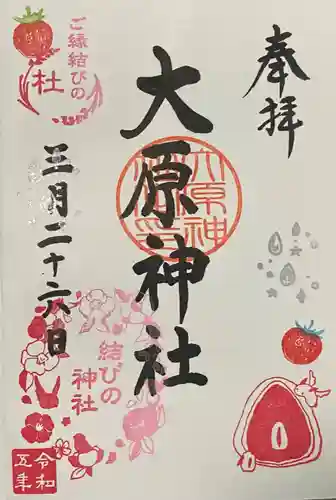 奉拝
大原神社
ご縁結びの
杜
三月二十六日
結びの
神社
令和
五年